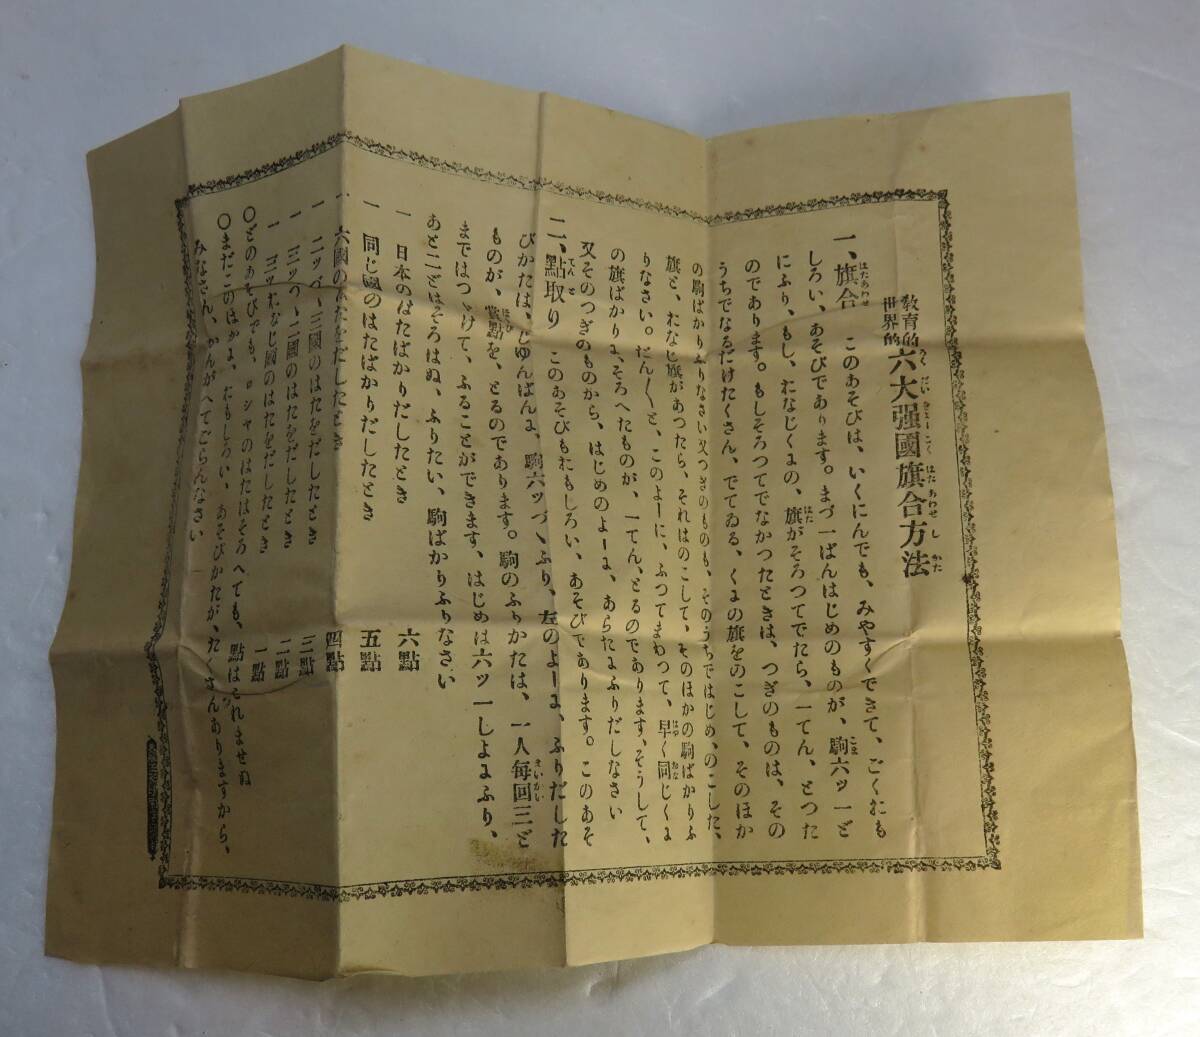 教育的
世界的
六大强國旗合方法
一、旗合 このあそびは、いくにんでも、みやすくできて、ごくおも
しろい、あそびであります。まづ一ばんはじめのものが、駒六ッ一ど
にふり、もし、おなじくにの、旗がそろつてでたら、一てん、とつた
のであります。もしそろつてでなかつたときは、つぎのものは、その
うちでなるだけたくさん、でてゐる、くにの旗をのこして、そのほか
の駒ばかりふりなさい又つぎのものも、そのうちではじめ、のこした、
旗と、おなじ旗があつたら、それはのこして、そのほかの駒ばかりふ
りなさい。だん〱と、このよーに、ふつてまわつて、早く同じくに
の旗ばかりに、そろへたものが、一てん、とるのであります、そうして、
又そのつぎのものから、はじめのよーに、あらたにふりだしなさい
二、點取り このあそびもおもしろい、あそびであります。このあそ
びかたは、じゆんばんに、駒六ッづゝふり、左のよーに、ふりだした
ものが、賞點を、とるのであります。駒のふりかたは、一人每回三ど
まではつゞけて、ふることができます、はじめは六ッ一しよにふり、
あと二どはそろはぬ、ふりたい、駒ばかりふりなさい
一 日本のはたばかりだしたとき 六點
一 同じ國のはたばかりだしたとき 五點
一 六國のはたをだしたとき 四點
一 二ッづゝ三國のはたをだしたとき 三點
一 三ッづゝ二國のはたをだしたとき 二點
一 三ッおなじ國のはたをだしたとき 一點
〇どのあそびでも、ロシヤのはたはそろへても、點はとれませぬ
〇まだこのほかに、おもしろい、あそびかたが、たくさんありますから、
みなさん、かんがへてごらんなさい